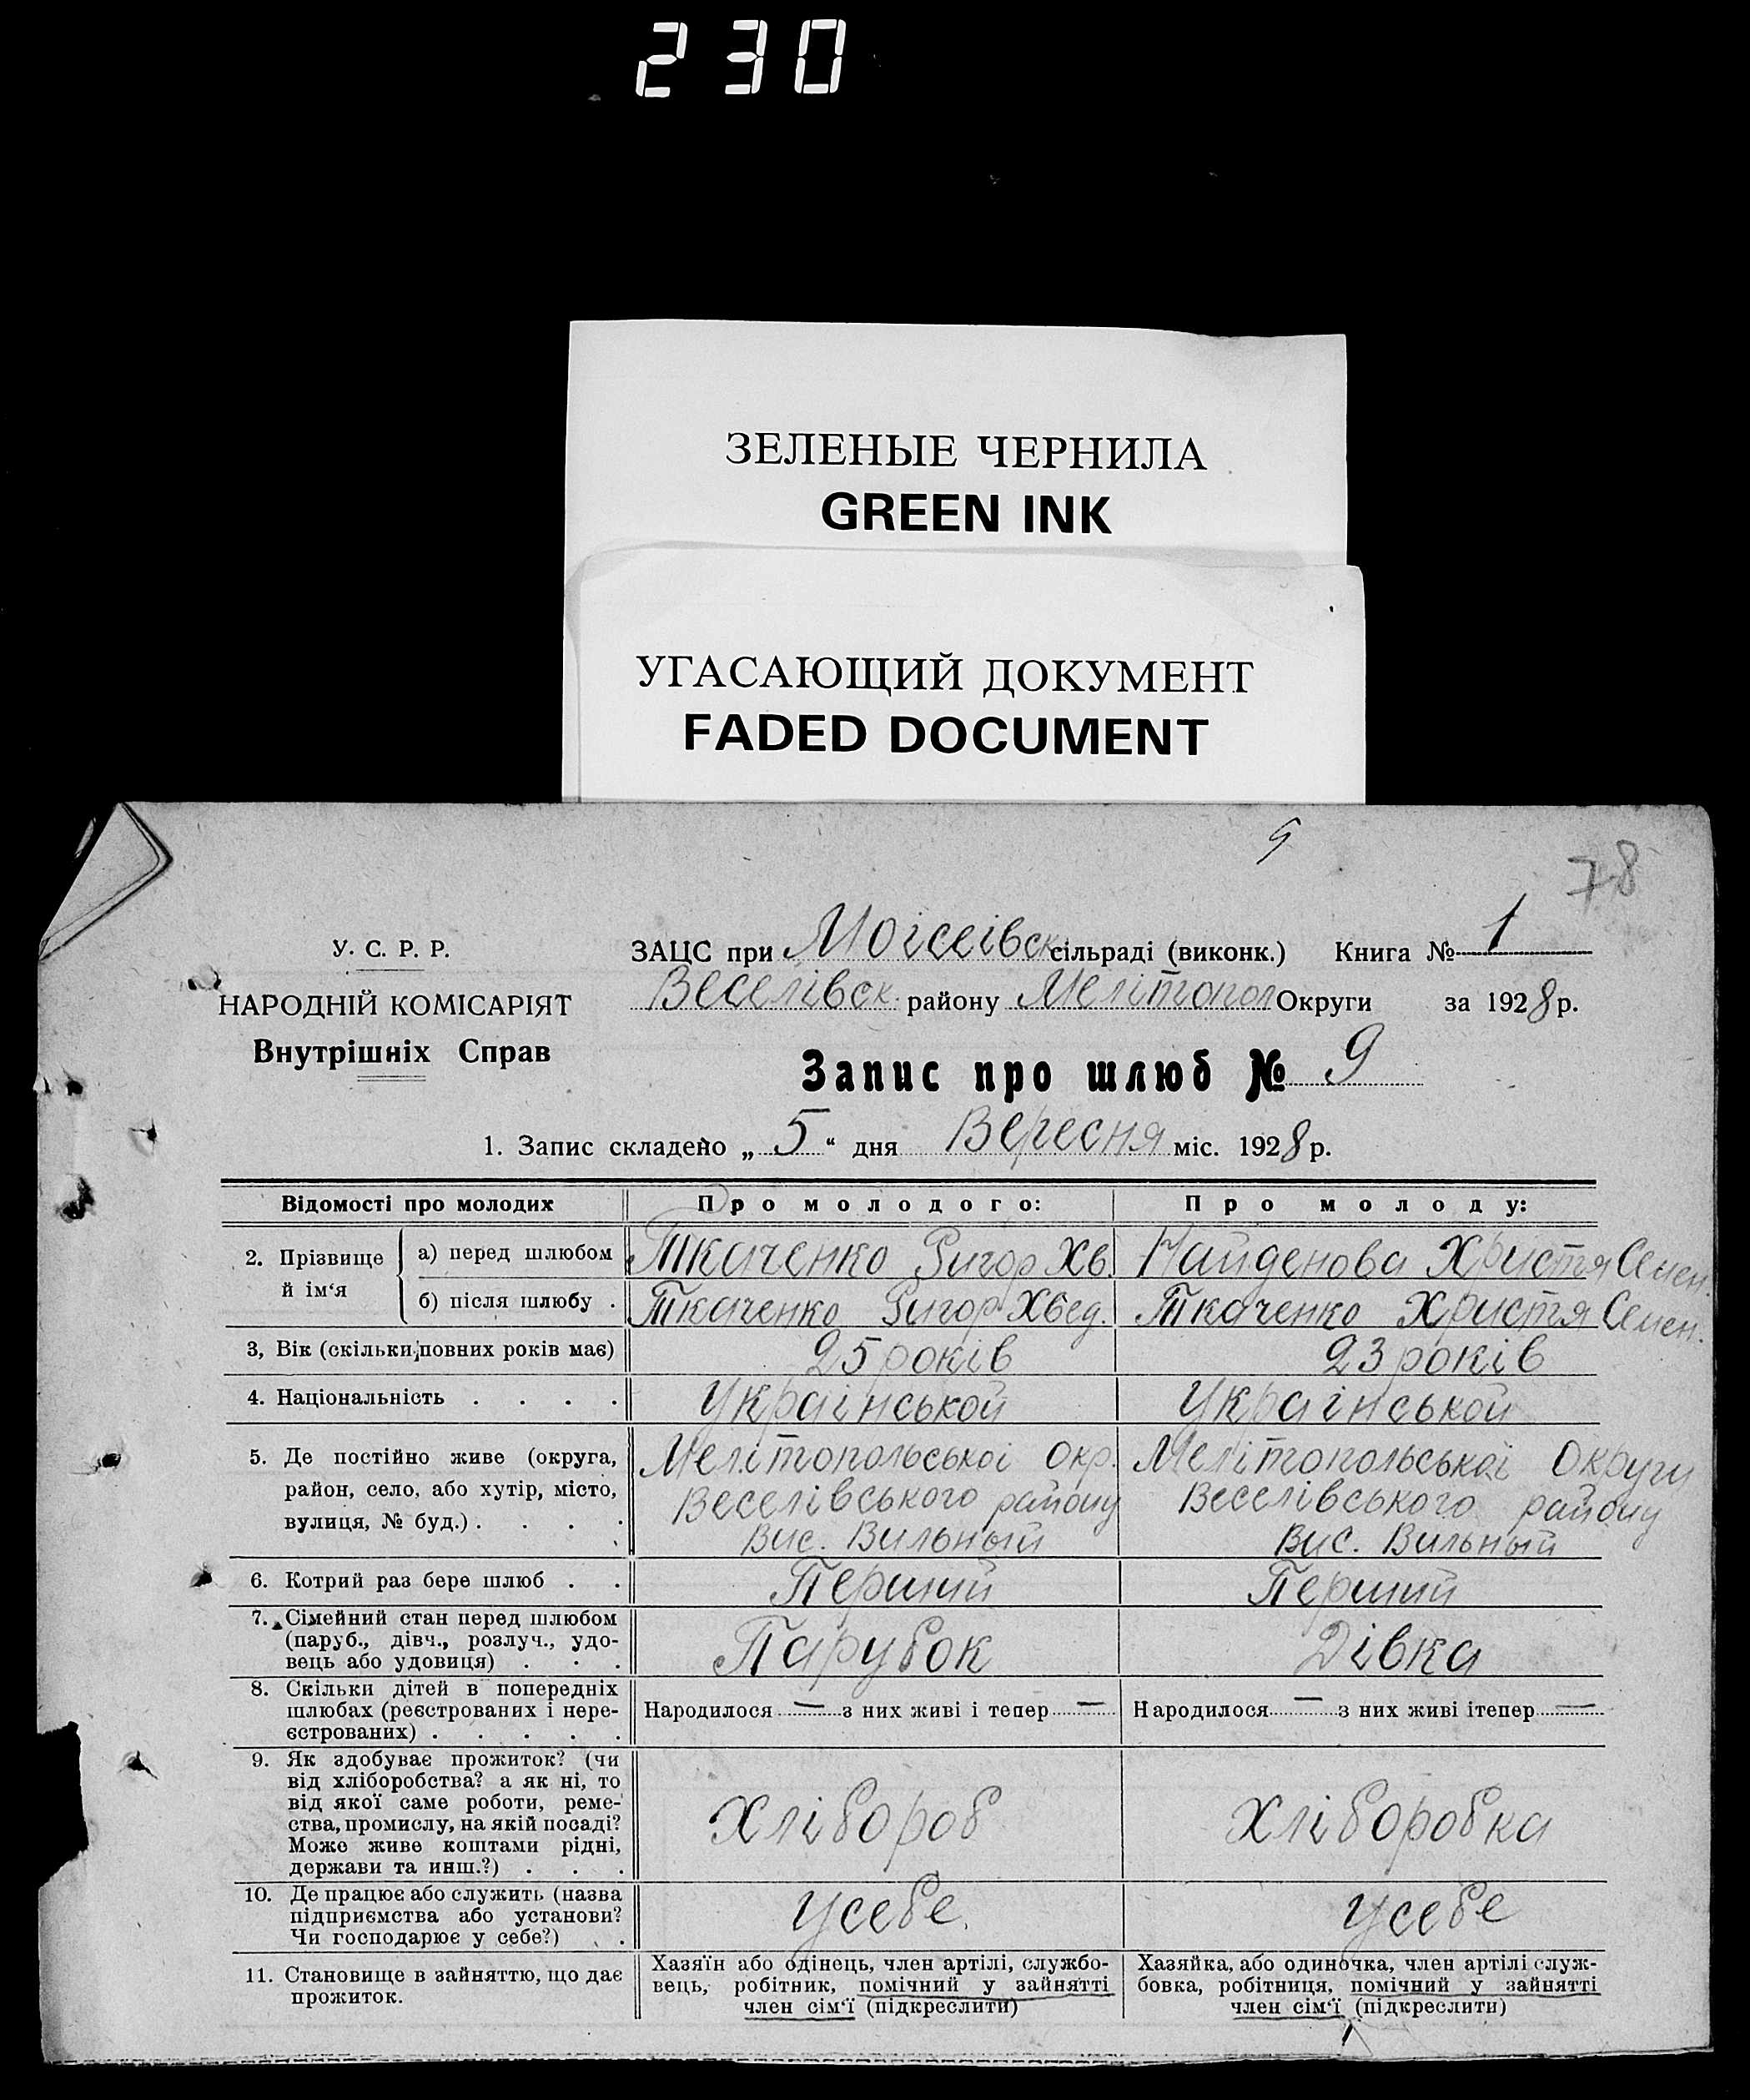 230
ЗЕЛЕНЫЕ ЧЕРНИЛА
GREEN INK
УГАСАЮЩИЙ ДОКУМЕНТ
FADED DOCUMENT
9
78
У. С. Р. Р.
НАРОДНІЙ КОМІСАРІЯТ
Внутрішніх Справ
ЗАЦС при Моісеівск сільраді (виконк.) Книга № 1
Веселівск. району Мелітопол Округи за 1928 р.
Запис про шлюб № 9
1. Запис складено „ 5 “ дня Вересня міс. 1928 р.
Відомості про молодих Про молодого: Про молоду:
2. Прізвище й ім‘я
а) перед шлюбом Ткаченко Григор Хв. Найденова Христя Семен.
б) після шлюбу . Ткаченко Григор Хвед. Ткаченко Христя Семен.
3, Вік (скільки повних років має) 25 років 23 років
4. Національність . . . . Украінськой Украінськой
5. Де постійно живе (округа, район, село, або хутір, місто, вулиця, № буд.) . . . .
Мелітопольськоі Окр. Мелітопольськоі Округи
Веселівського району Веселівського району
Вис. Вильный Вис. Вильный
6. Котрий раз бере шлюб . . Перший Перший
7. Сімейний стан перед шлюбом
(паруб., дівч., розлуч., удо-
вець або удовиця) . . . Парубок Дівка
8. Скільки дітей в попередніх
шлюбах (реєстрованих і нере-
єстрованих) . . . . .
Народилося — з них живі і тепер — Народилося — з них живі ітепер —
9. Як здобуває прожиток? (чи
від хліборобства? а як ні, то
від якої саме роботи, реме-
ства, промислу, на якій посаді?
Може живе коштами рідні,
держави та инш.?) . . .
Хлібороб Хліборобка
10. Де працює або служить (назва
підприємства або установи?
Чи господарює у себе?) . .
Усебе Усебе
11. Становище в зайняттю, що дає
прожиток.
Хазяїн або одінець, член артілі, службо-
вець, робітник, помічний у зайнятті
член сім‘ї (підкреслити)
Хазяйка, або одиночка, член артілі служ-
бовка, робітниця, помічний у зайнятті
член сім‘ї (підкреслити)